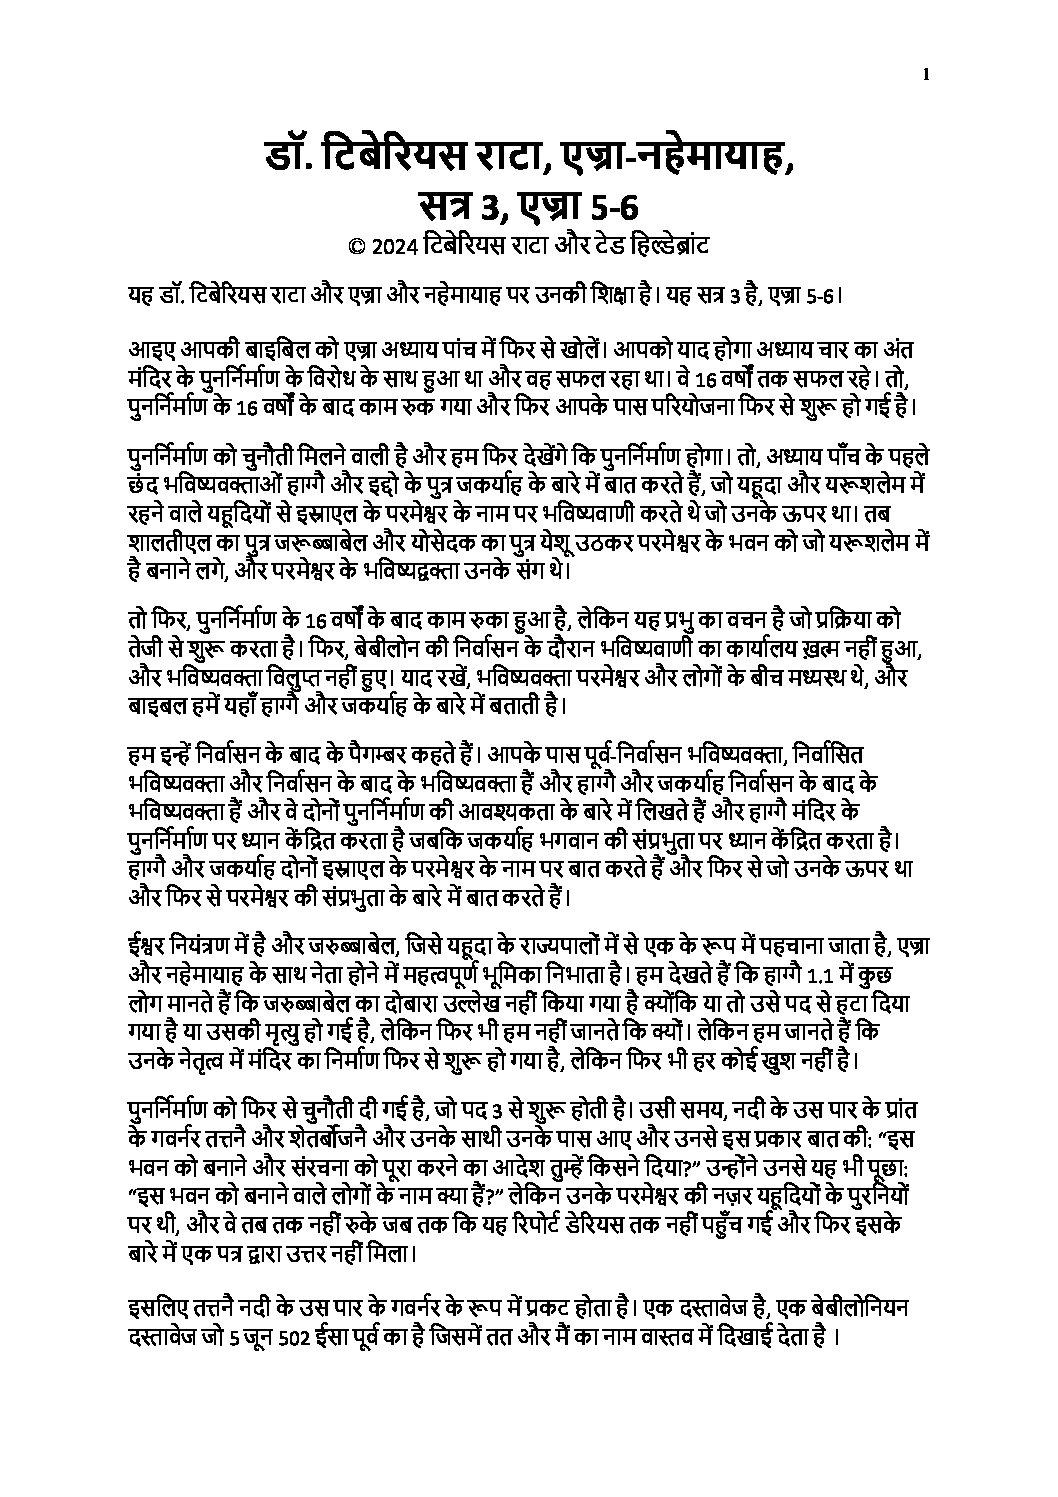 1
डॉ. टिबेरियस राटा, एज्रा-नहेमायाह,
सत्र 3, एज्रा 5-6
© 2024 टिबेरियस राटा और टेड हिल्डेब्रांट
यह डॉ. टिबेरियस राटा और एज्रा और नहेमायाह पर उनकी शिक्षा है। यह सत्र 3 है, एज्रा 5-6।
आइए आपकी बाइबिल को एज्रा अध्याय पांच में फिर से खोलें। आपको याद होगा अध्याय चार का अंत
मंदिर के पुनर्निर्माण के विरोध के साथ हुआ था और वह सफल रहा था। वे 16 वर्षों तक सफल रहे। तो,
पुनर्निर्माण के 16 वर्षों के बाद काम रुक गया और फिर आपके पास परियोजना फिर से शुरू हो गई है।
पुनर्निर्माण को चुनौती मिलने वाली है और हम फिर देखेंगे कि पुनर्निर्माण होगा। तो, अध्याय पाँच के पहले
छंद भविष्यवक्ताओं हाग्गै और इद्दो के पुत्र जकर्याह के बारे में बात करते हैं, जो यहूदा और यरूशलेम में
रहने वाले यहूदियों से इस्राएल के परमेश्वर के नाम पर भविष्यवाणी करते थे जो उनके ऊपर था। तब
शालतीएल का पुत्र जरूब्बाबेल और योसेदक का पुत्र येशू उठकर परमेश्वर के भवन को जो यरूशलेम में
है बनाने लगे, और परमेश्वर के भविष्यद्वक्ता उनके संग थे।
तो फिर, पुनर्निर्माण के 16 वर्षों के बाद काम रुका हुआ है, लेकिन यह प्रभु का वचन है जो प्रक्रिया को
तेजी से शुरू करता है। फिर, बेबीलोन की निर्वासन के दौरान भविष्यवाणी का कार्यालय ख़त्म नहीं हुआ,
और भविष्यवक्ता विलुप्त नहीं हुए। याद रखें, भविष्यवक्ता परमेश्वर और लोगों के बीच मध्यस्थ थे, और
बाइबल हमें यहाँ हाग्गै और जकर्याह के बारे में बताती है।
हम इन्हें निर्वासन के बाद के पैगम्बर कहते हैं। आपके पास पूर्व-निर्वासन भविष्यवक्ता, निर्वासित
भविष्यवक्ता और निर्वासन के बाद के भविष्यवक्ता हैं और हाग्गै और जकर्याह निर्वासन के बाद के
भविष्यवक्ता हैं और वे दोनों पुनर्निर्माण की आवश्यकता के बारे में लिखते हैं और हाग्गै मंदिर के
पुनर्निर्माण पर ध्यान केंद्रित करता है जबकि जकर्याह भगवान की संप्रभुता पर ध्यान केंद्रित करता है।
हाग्गै और जकर्याह दोनों इस्राएल के परमेश्वर के नाम पर बात करते हैं और फिर से जो उनके ऊपर था
और फिर से परमेश्वर की संप्रभुता के बारे में बात करते हैं।
ईश्वर नियंत्रण में है और जरुब्बाबेल, जिसे यहूदा के राज्यपालों में से एक के रूप में पहचाना जाता है, एज्रा
और नहेमायाह के साथ नेता होने में महत्वपूर्ण भूमिका निभाता है। हम देखते हैं कि हाग्गै 1.1 में कुछ
लोग मानते हैं कि जरुब्बाबेल का दोबारा उल्लेख नहीं किया गया है क्योंकि या तो उसे पद से हटा दिया
गया है या उसकी मृत्यु हो गई है, लेकिन फिर भी हम नहीं जानते कि क्यों। लेकिन हम जानते हैं कि
उनके नेतृत्व में मंदिर का निर्माण फिर से शुरू हो गया है, लेकिन फिर भी हर कोई खुश नहीं है।
पुनर्निर्माण को फिर से चुनौती दी गई है, जो पद 3 से शुरू होती है। उसी समय, नदी के उस पार के प्रांत
के गवर्नर तत्तनै और शेतर्बोजनै और उनके साथी उनके पास आए और उनसे इस प्रकार बात की: "इस
भवन को बनाने और संरचना को पूरा करने का आदेश तुम्हें किसने दिया?" उन्होंने उनसे यह भी पूछा:
"इस भवन को बनाने वाले लोगों के नाम क्या हैं?" लेकिन उनके परमेश्वर की नज़र यहूदियों के पुरनियों
पर थी, और वे तब तक नहीं रुके जब तक कि यह रिपोर्ट डेरियस तक नहीं पहुँच गई और फिर इसके
बारे में एक पत्र द्वारा उत्तर नहीं मिला।
इसलिए तत्तनै नदी के उस पार के गवर्नर के रूप में प्रकट होता है। एक दस्तावेज है, एक बेबीलोनियन
दस्तावेज जो 5 जून 502 ईसा पूर्व का है जिसमें तत और मैं का नाम वास्तव में दिखाई देता है ।